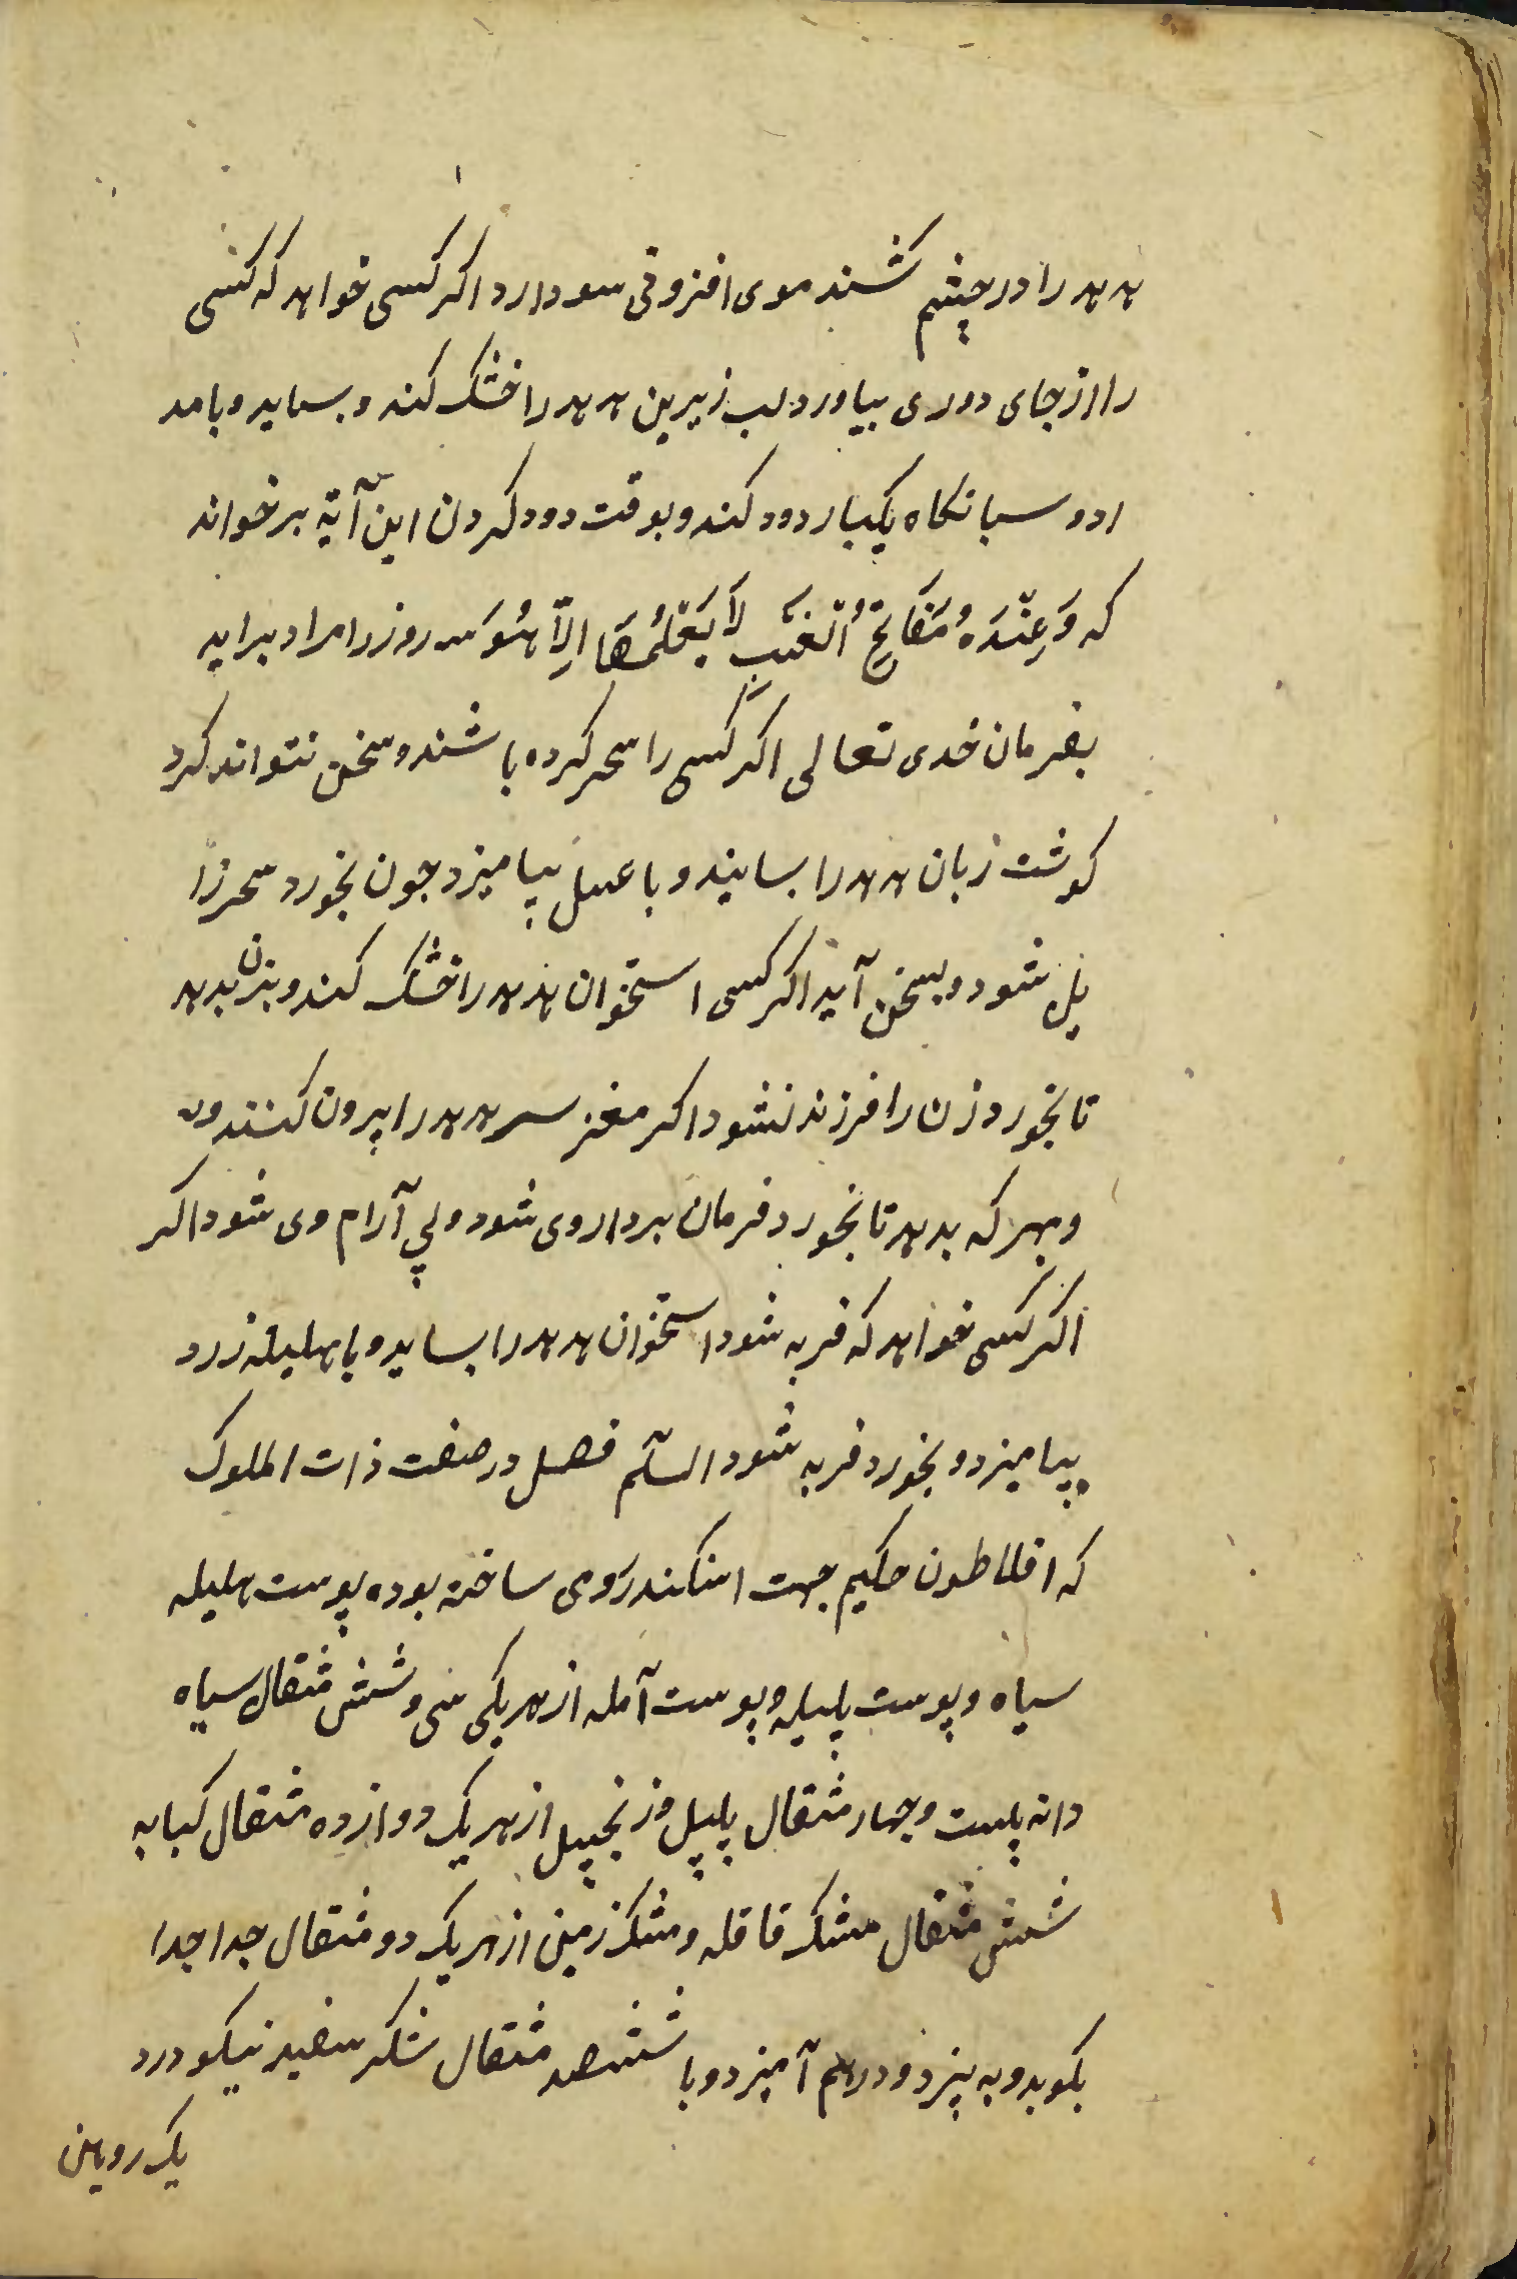 هدهد را در چشم کشند موی افزونی سود دارد اکر کسی خواهد که کسی
را از جای دوری بیاورد لب زیرین هدهد را خشک کند و بساید و بامد
ادو سبانکاه یکبار دود کند و بوقت دود کردن این آیة برخواند
که وَعِنْدَهُ مَفَاتِحُ الْغَیْبِ لَا یَعْلَمُهَا اِلَّا هُوَ سه روز را مراد براید
بفرمان خدی تعالی اکر کسی را سحر کرده باشند و سخن نتواند کرد
کوشت زبان هدهد را بسایند و با عسل بیامیزد جون بخورد سحر زا
یل شود و بسخن آید اکر کسی استخوان هدهد را خشک کند و بزن بدهد
تا بخورد زن را فرزند نشود اکر مغز سر هدهد را بیرون کنند
و بهر که بدهد تا بخورد فرمان بردار وی شود و بی آرام وی شود اکر
اکر کسی خواهد که فربه شود استخوان هدهد را بساید و با هلیله زرد
بیامیزد و بخورد فربه شود السلم فصل در صفت ذات الملوک
که افلاطون حکیم جهت اسکندر رومی ساخته بوده پوست هلیله
سیاه و پوست بلیله و پوست آمله از هریکی سی و شش مثقال سیاه
دانه بیست و جهار مثقال پلپل و زنجبیل از هریک دوازده مثقال کبابه
شش مثقال مشک قاقله و مشک زمین از هریک دو مثقال جدا جدا
بکوبد و به بیزد و درهم آمیزد و با ششصد مثقال شکر سفید نیکو درد
یک روین